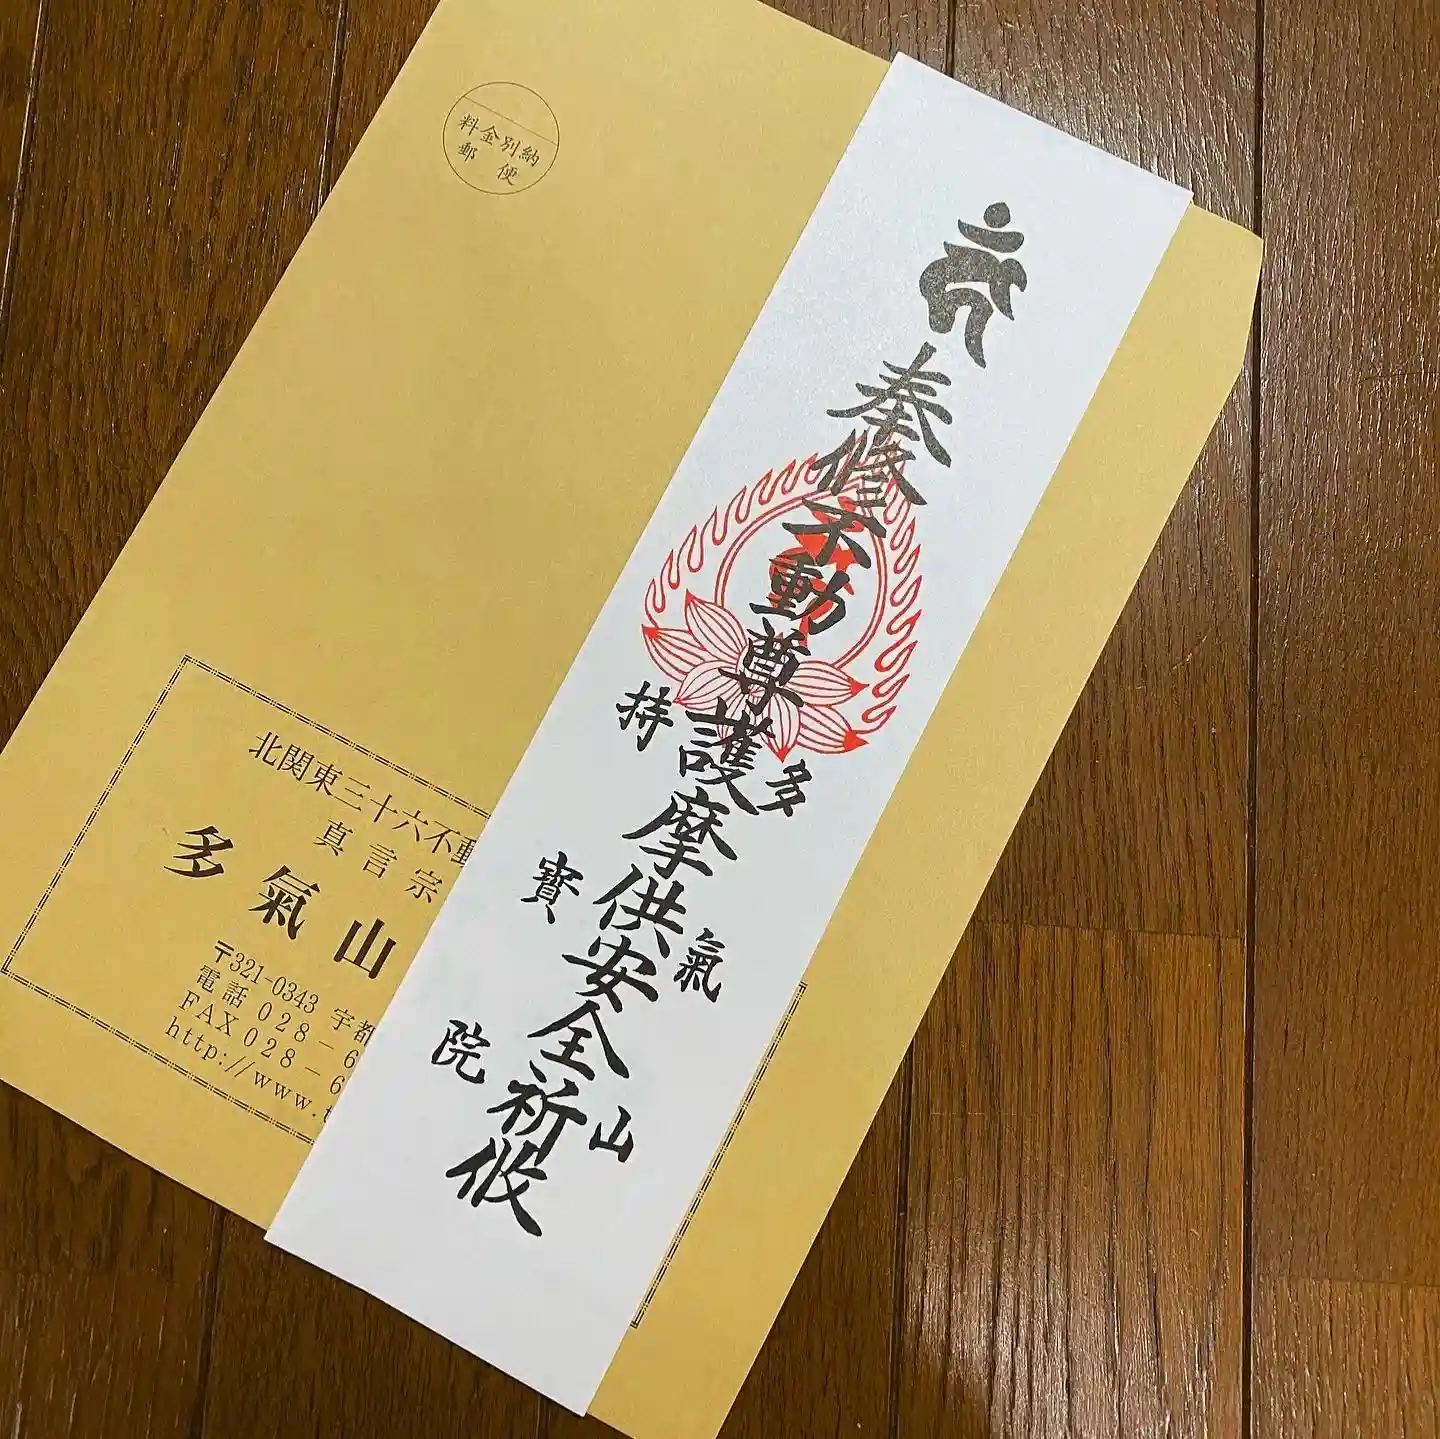 料金別納
郵便
奉修不動尊護摩供安全祈攸
多氣山
持寳院
北関東三十六不動
真言宗
多氣山
〒321-0343 宇都
電話 028-6
FAX 028-6
http://www.t